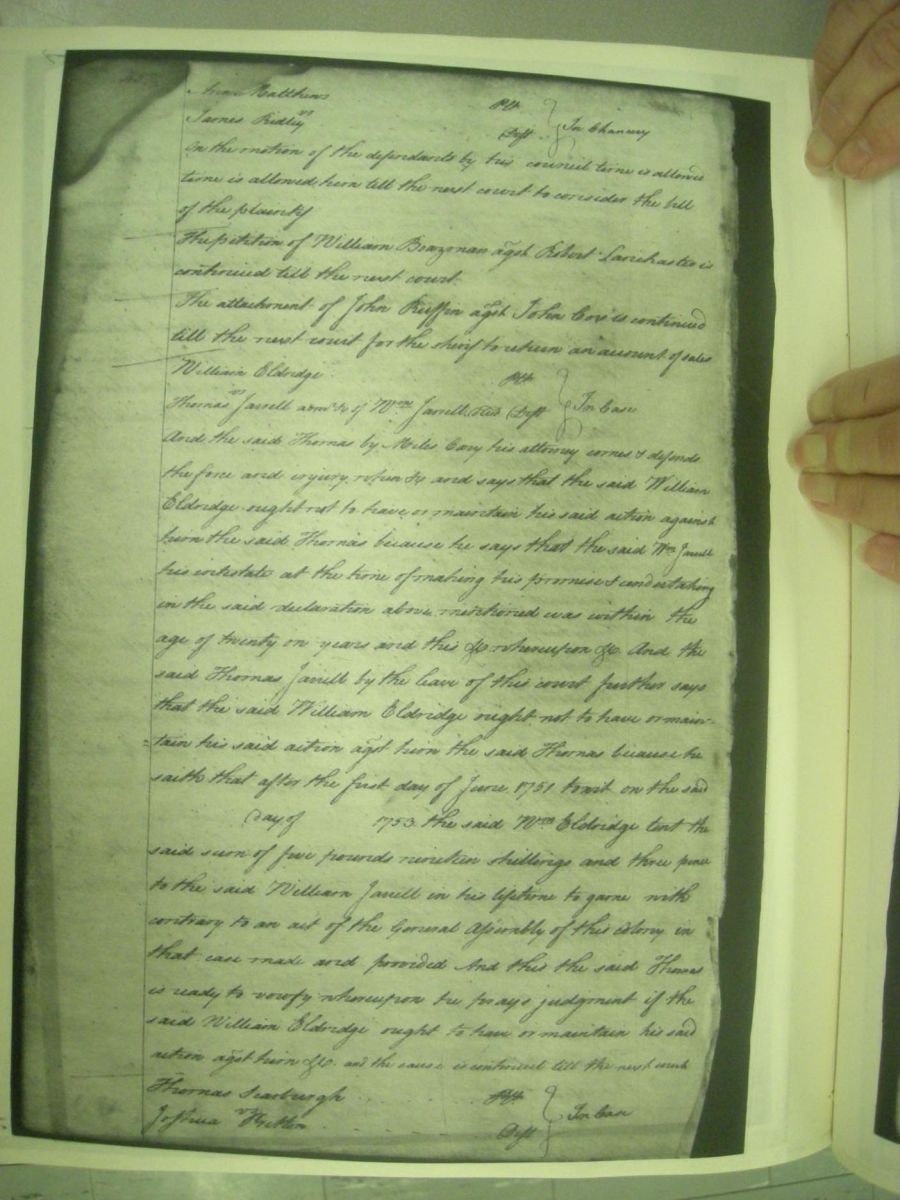 Ann Matthews Plt
vs } In Chancery
James Ridley Deft
On the motion of the defendants by his councill time is allowed
time is allowed him till the next court to consider the bill
of the plaintif
The petition of William Boazman agst Robert Lanchaster is
continued till the next court
The attachment of John Ruffin agst John Cox is continued
till the next court for the sherif to return an account of sales
William Eldridge Plt
vs } In Case
Thomas Jarrell admr &c of Wm Jarrell Deft
And the said Thomas by Miles Cary his attorney comes & defends
the force and injury when &c and says that the said William
Eldridge ought not to have or maintain his said action against
him the said Thomas because he says that the said Wm Jarrell
his intestate at the time of making his promise & undertaking
in the said declaration above mentioned was within the
age of twenty on years and this &c whereupon &c. And the
said Thomas Jarrell by the leave of this court further says
that the said William Eldridge ought not to have or main-
tain his said action agst him the said Thomas because he
saith that after the first day of June 1751 towit on the said
day of 1753 the said Wm Eldridge lent the
said sum of five pounds nineteen shillings and three pence
to the said William Jarrell in his lifetime to game with
contrary to an act of the General Assembly of this colony in
that case made and provided And this the said Thomas
is ready to verify whereupon he prays judgment if the
said William Eldridge ought to have or maintain his said
action agst him &c. and the cause is continued till the next court
Thomas Scarburgh Plt
vs } In Case
Joshua Deft